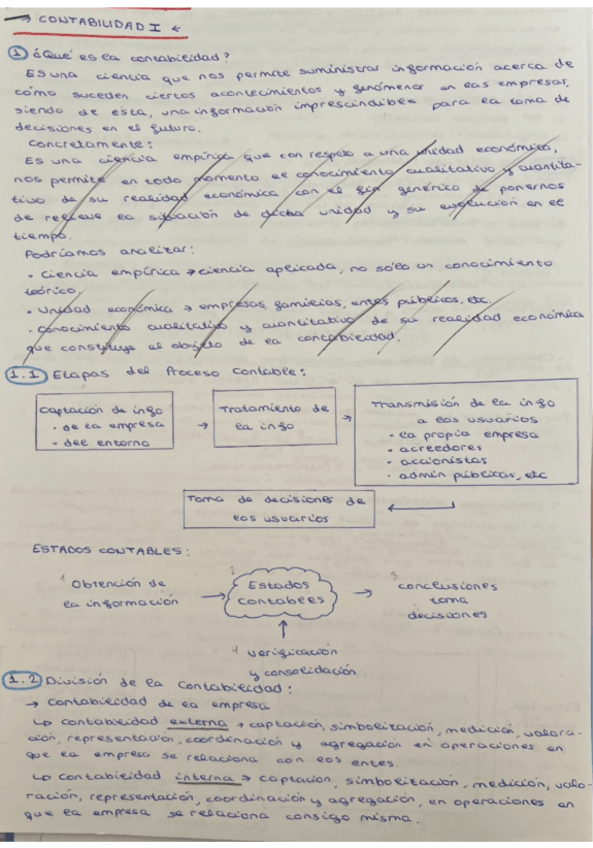 → CONTABILIDAD I ←
1 ¿Qué es la contabilidad?
Es una ciencia que nos permite suministrar información acerca de
cómo suceden ciertos acontecimientos y fenómenos en las empresas,
siendo de esta, una información imprescindible para la toma de
decisiones en el futuro.
Concretamente:
Es una ciencia empírica que con respeto a una unidad económica,
nos permite en todo momento el conocimiento cualitativo y cuantita-
tivo de su realidad económica con el fin genérico de ponernos
de relieve la situación de dicha unidad y su evolución en el
tiempo.
Podríamos analizar:
· Ciencia empírica → ciencia aplicada, no sólo un conocimiento
teórico.
· Unidad económica → empresas, familias, entes públicos, etc.
· Conocimiento cualitativo y cuantitativo de su realidad económica
que constituye el objeto de la contabilidad.
1.1 Etapas del Proceso Contable:
Captación de info
· de la empresa
· del entorno
→
Tratamiento de
la info
→
Transmisión de la info
a los usuarios
· la propia empresa
· acreedores
· accionistas
· admin públicas, etc
Toma de decisiones de
los usuarios
←
ESTADOS CONTABLES:
1 Obtención de
la información
→
2
Estados
Contables
→
3
conclusiones
toma
decisiones
↑
4 verificación
y consolidación
1.2 División de la Contabilidad:
→ Contabilidad de la empresa
↳ Contabilidad externa → captación, simbolización, medición, valora-
ción, representación, coordinación y agregación en operaciones en
que la empresa se relaciona con los entes.
↳ Contabilidad interna → captación, simbolización, medición, valo-
ración, representación, coordinación y agregación, en operaciones en
que la empresa se relaciona consigo misma.